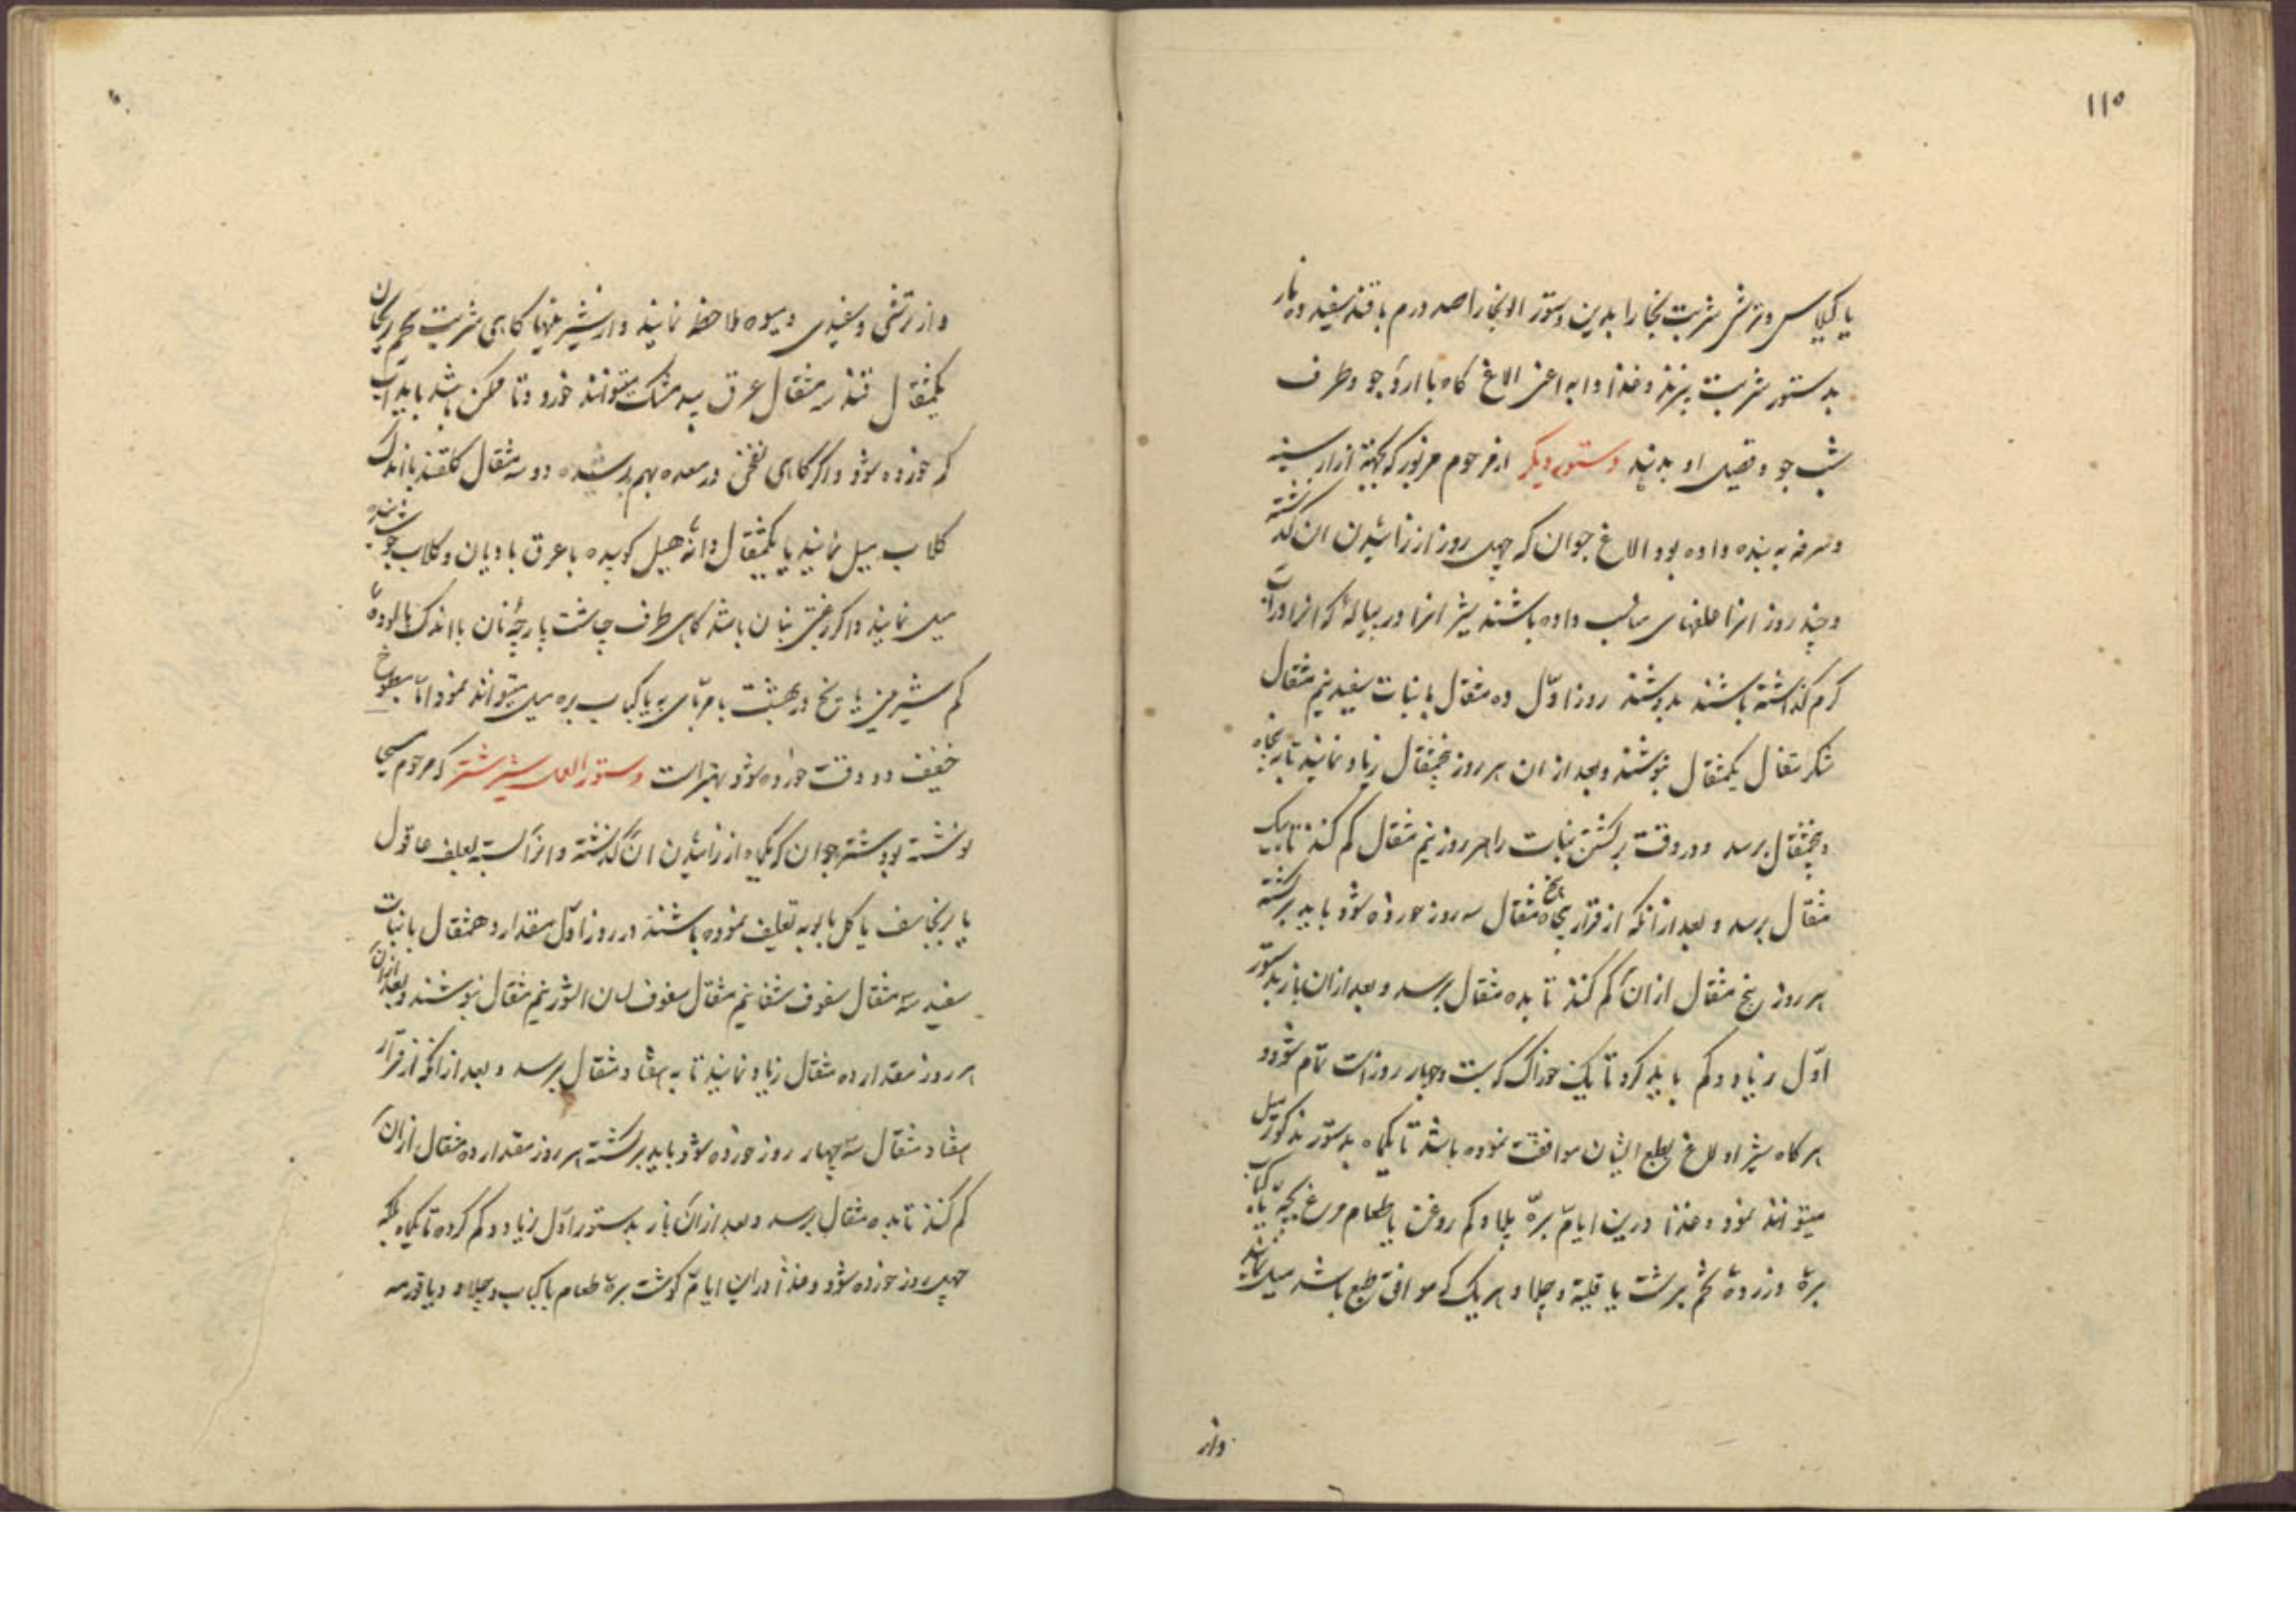 ۱۱۵
یا کیلاس و ترشی شربت بخارا بدین دستور الو بخارا صد درم با قند سفید ده نار
بدستور شربت بپزند و غذا دابه اعنی الاغ کاه با ارد جو و طرف
شب جو و قصیل او بدهند دستور دیگر از مرحوم مزبور که بجهة ازار سینه
و سرفه به بنده داده بود الاغ جوان که چهل روز از زائیدن ان گذشته
و چند روز انرا علفهای مناسب داده باشند شیر انرا در پیاله که انرا در اب
کرم گذاشته باشند بدوشند روز اوّل ده مثقال با نبات سفید نیم مثقال
شکر تغال یکمثقال بنوشند و بعد از ان هر روز پنجمثقال زیاد نمایند تا به پنجاه
و پنجمثقال برسد و در وقت برکشتن نبات را هر روز نیم مثقال کم کنند تا بیک
مثقال برسد و بعد از انکه از قرار پنجاه پنج مثقال سه روز خورده شود باید برکشته
هر روز پنج مثقال از ان کم کنند تا بده مثقال برسد و بعد از ان باز بدستور
اوّل زیاد و کم باید کرد تا یک خوراک که بیست و چهار روز است تمام شود و
هر کاه شیر اولاغ بطبع ایشان موافقت نموده باشد تا یکماه بدستور مذکور میل
میتوانند نمود و غذا درین ایام برّه پلاو کم روغن یا طعام مرغ بچّه یا کباب
برهٔ و زردهٔ تخم برشت یا قلیه و چلاو هر یک که موافق طبع باشد میل نمایند
واز
واز ترشی و سفیدی و میوه ملاحظه نمایند و از شیرینیها کاهی شربت تخم ریحان
یکمثقال قند سه مثقال عرق بیدمشک میتوانند خورد و تا ممکن باشد باید اب
کم خورده شود و اکر کاهی نفخی در معده بهم رسیده دو سه مثقال کلقند با اندک
کلاب میل نمایند یا یکمثقال دانهٔ هیل کوبیده با عرق بادیان و کلاب جوشانیده
میل نمایند و اکر رغبتی بنان باشد کاهی طرف چاشت پارچهٔ نان با اندک پالودهٔ
کم شیرینی یا یخ در بهشت یا مربّای به یا کباب بره میل میتوانند نمود امّا مطبوخ
خفیف دو وقت خورده شود بهتر است دستور العمل شیر شتر که مرحوم مسیحا
نوشته بود شتر جوان که یکماه از زائیدن ان گذشته و انرا بسته بعلف عاقول
یا برنجاسف یا کل بابونه تعلیف نموده باشند در روز اوّل مقدار دهمثقال با نبات
سفید سه مثقال سفوف شفا نیم مثقال سفوف لسان الثور نیم مثقال بنوشند و بعد از ان
هر روز مقدار ده مثقال زیاد نمایند تا به هفتاد مثقال برسد و بعد از انکه از قرار
هفتاد مثقال سه چهار روز خورده شود باید برکشته هر روز مقدار ده مثقال از ان
کم کنند تا بده مثقال برسد و بعد از ان باز بدستور اوّل زیاد و کم کرده تا یکماه بلکه
چهل روز خورده شود و غذا در این ایام کوشت برهٔ طعام یا کباب و چلاو و یا قورمه